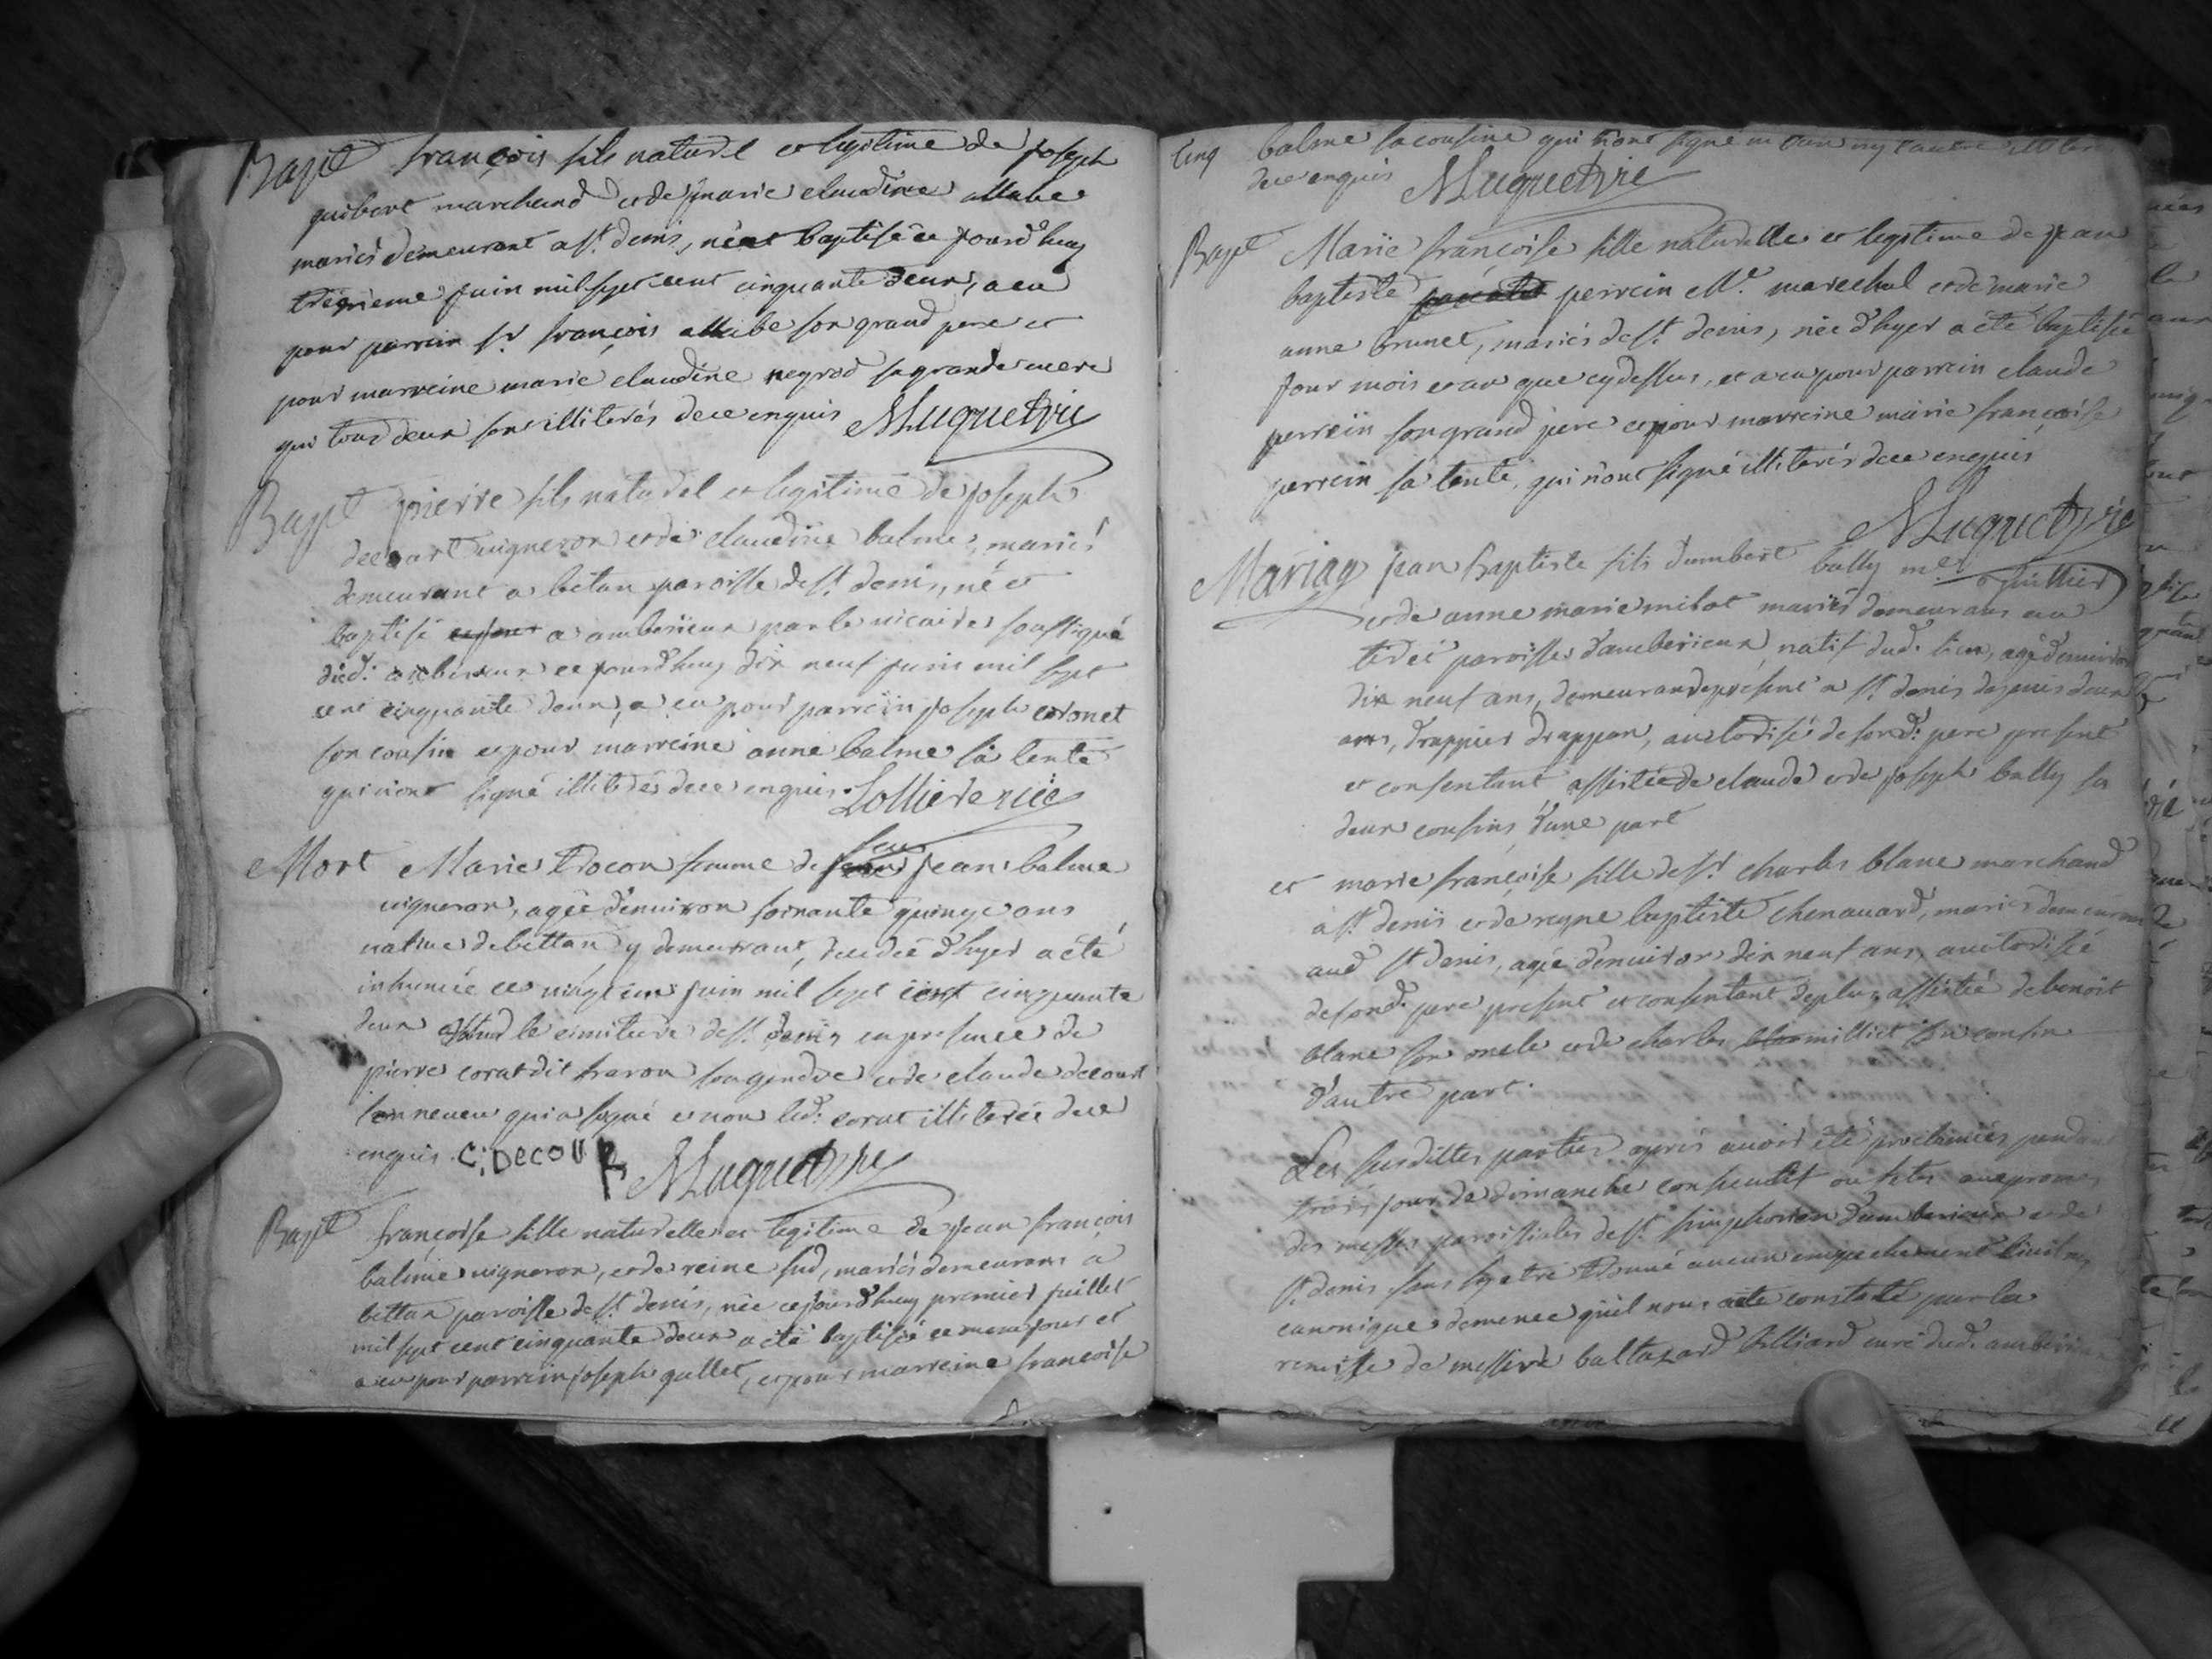 Bapt françois fils naturel et legitime de joseph
guibert marchand et de marie claudine allabe
mariés demeurant a st. denis, né et baptisé ce jourd'huy
treizieme juin mil sept cent cinquante deux, a eu
pour parrein sr françois allabe son grand pere et
pour marreine marie claudine negrod sa grande mere
qui tous deux sont illiterés de ce enquis MLuguet vic
Bapt pierre fils naturel et legitime de joseph
decourt vigneron et de claudine balme, mariés
demeurant a betan paroisse de st. denis, né et
baptisé a amberieux par le vicaire soussigné
dud. amberieux ce jourd'huy dix neuf juin mil sept
cent cinquante deux, a eu pour parrein joseph coronet
son cousin et pour marreine anne balme sa tente
qui n'ont signé illiterés de ce enquis. Lollier vic
Mort Marie trocon femme de feu jean balme
vigneron, agée d'environ soixante quinze ans
native de bettan y demeurant, decedée d'hyer a été
inhumée ce vingt un juin mil sept cent cinquante
deux le cimitiere de st. denis en presence de
pierre corat dit son gendre et de claude decourt
son neveu qui a signé et non led. corat illiteré de ce
enquis. C. DECOUR MLuguet vic
Bapt françoise fille naturelle et legitime de jean françois
balme vigneron, et de reine sud, mariés demeurans a
bettan paroisse de st. denis, née ce jourd'huy premier juillet
mil sept cent cinquante deux a été baptisée ce meme jour et
a eu pour parrein joseph gullet, et pour marreine françoise
Cinq balme sa cousine qui n'ont signé ni l'un ny l'autre
de ce enquis MLuguet vic
Bapt Marie françoise fille naturelle et legitime de jean
baptiste perrein Me. marechal et de marie
anne brunet, mariés de st. denis, née d'hyer a été baptisée
jour mois et an que cy dessus, et a eu pour parrein claude
perrein son grand pere et pour marreine marie françoise
perrein sa tente, qui n'ont signé illiterés de ce enquis
MLuguet vic
Mariag jean baptiste fils d'umbert bully me.
et de anne marie milot mariés demeurans au
tiret paroisse d'amberieux, natif dud. lieu, agé d'environ
dix neuf ans, demeurant a present a st. denis depuis deux
ans, drappier drappan, authorisé de sond. pere present
et consentant assisté de claude et de joseph bully ses
deux cousins d'une part
et marie françoise fille de sr charles blanc marchand
a st. denis et de reyne baptiste chenavard, mariés demeurans
aud st denis, agée d'environ dix neuf ans, authorisée
de sond. pere present et consentant de plus assistée de benoit
blanc son oncle et de charles milliet son cousin
d'autre part.
Les susdittes parties aprés avoir été proclamées pendant
trois jours de dimanche consecutif ou fetes aux prones
des messes paroissiales de st. simphorien d'amberieux et de
st. denis sans s'y etre trouvé aucun empechement civil ny
canonique demence qu'il nous a été constaté par la
remisse de messire baltazard billiard curé dud. amberieux